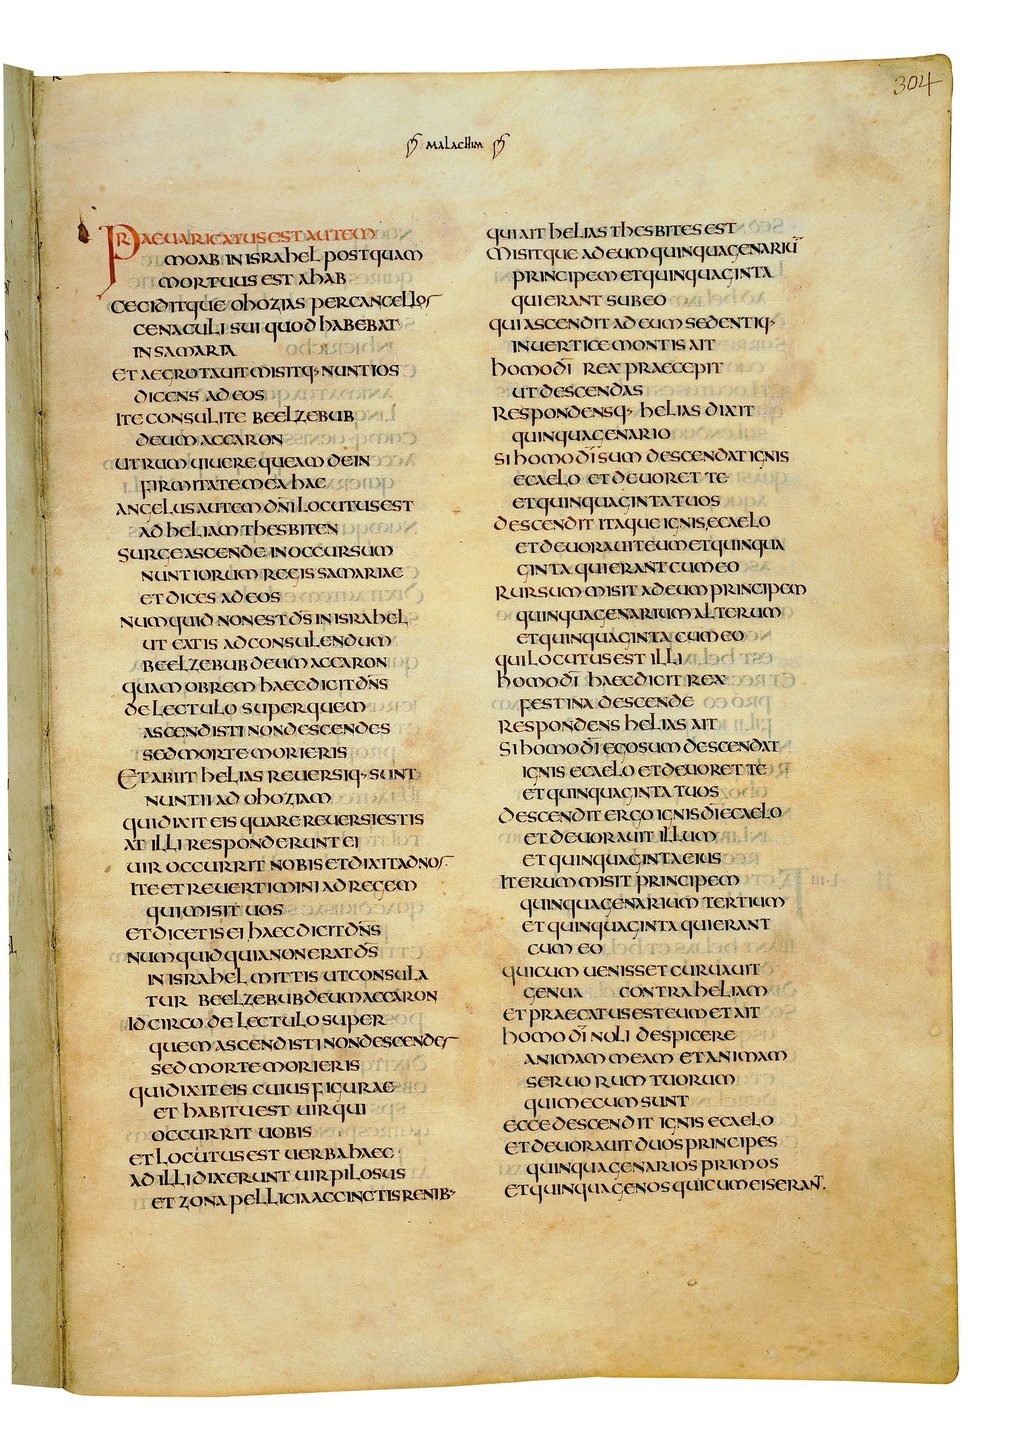 304
MALACHIM
PRAEUARICATUS EST AUTEM
MOAB IN ISRAHEL POSTQUAM
MORTUUS EST AHAB
CECIDITQUE OHOZIAS PER CANCELLOS
CENACULI SUI QUOD HABEBAT
IN SAMARIA
ET AEGROTAUIT MISITQ· NUNTIOS
DICENS AD EOS
ITE CONSULITE BEELZEBUB
DEUM ACCARON
UTRUM UIUERE QUEAM DE IN
FIRMITATE MEA HAC
ANGELUS AUTEM DN̄I LOCUTUS EST
AD HELIAM THESBITEN
SURGE ASCENDE IN OCCURSUM
NUNTIORUM REGIS SAMARIAE
ET DICES AD EOS
NUMQUID NON EST D̄S IN ISRAHEL
UT EATIS AD CONSULENDUM
BEELZEBUB DEUM ACCARON
QUAM OBREM HAEC DICIT DN̄S
DE LECTULO SUPER QUEM
ASCENDISTI NON DESCENDES
SED MORTE MORIERIS
ET ABIIT HELIAS REUERSIQ· SUNT
NUNTII AD OHOZIAM
QUI DIXIT EIS QUARE REUERSI ESTIS
AT ILLI RESPONDERUNT EI
UIR OCCURRIT NOBIS ET DIXIT AD NOS
ITE ET REUERTIMINI AD REGEM
QUI MISIT UOS
ET DICETIS EI HAEC DICIT DN̄S
NUMQUID QUIA NON ERAT D̄S
IN ISRAHEL MITTIS UT CONSULA
TUR BEELZEBUB DEUM ACCARON
IDCIRCO DE LECTULO SUPER
QUEM ASCENDISTI NON DESCENDES
SED MORTE MORIERIS
QUI DIXIT EIS CUIUS FIGURAE
ET HABITU EST UIR QUI
OCCURRIT UOBIS
ET LOCUTUS EST UERBA HAEC
AD ILLI DIXERUNT UIR PILOSUS
ET ZONA PELLICIA ACCINCTIS RENIB·
QUI AIT HELIAS THESBITES EST
MISITQUE AD EUM QUINQUAGENARIŪ
PRINCIPEM ET QUINQUAGINTA
QUI ERANT SUB EO
QUI ASCENDIT AD EUM SEDENTIQ·
IN UERTICE MONTIS AIT
HOMO DĪ REX PRAECEPIT
UT DESCENDAS
RESPONDENSQ· HELIAS DIXIT
QUINQUAGENARIO
SI HOMO DĪ SUM DESCENDAT IGNIS
E CAELO ET DEUORET TE
ET QUINQUAGINTA TUOS
DESCENDIT ITAQUE IGNIS E CAELO
ET DEUORAUIT EUM ET QUINQUA
GINTA QUI ERANT CUM EO
RURSUM MISIT AD EUM PRINCIPEM
QUINQUAGENARIUM ALTERUM
ET QUINQUAGINTA CUM EO
QUI LOCUTUS EST ILLI
HOMO DĪ HAEC DICIT REX
FESTINA DESCENDE
RESPONDENS HELIAS AIT
SI HOMO DĪ EGO SUM DESCENDAT
IGNIS E CAELO ET DEUORET TE
ET QUINQUAGINTA TUOS
DESCENDIT ERGO IGNIS DĪ E CAELO
ET DEUORAUIT ILLUM
ET QUINQUAGINTA EIUS
ITERUM MISIT PRINCIPEM
QUINQUAGENARIUM TERTIUM
ET QUINQUAGINTA QUI ERANT
CUM EO
QUI CUM UENISSET CURUAUIT
GENUA CONTRA HELIAM
ET PRAECATUS EST EUM ET AIT
HOMO DĪ NOLI DESPICERE
ANIMAM MEAM ET ANIMAM
SERUORUM TUORUM
QUI MECUM SUNT
ECCE DESCENDIT IGNIS E CAELO
ET DEUORAUIT DUOS PRINCIPES
QUINQUAGENARIOS PRIMOS
ET QUINQUAGENOS QUI CUM EIS ERAN̄T.